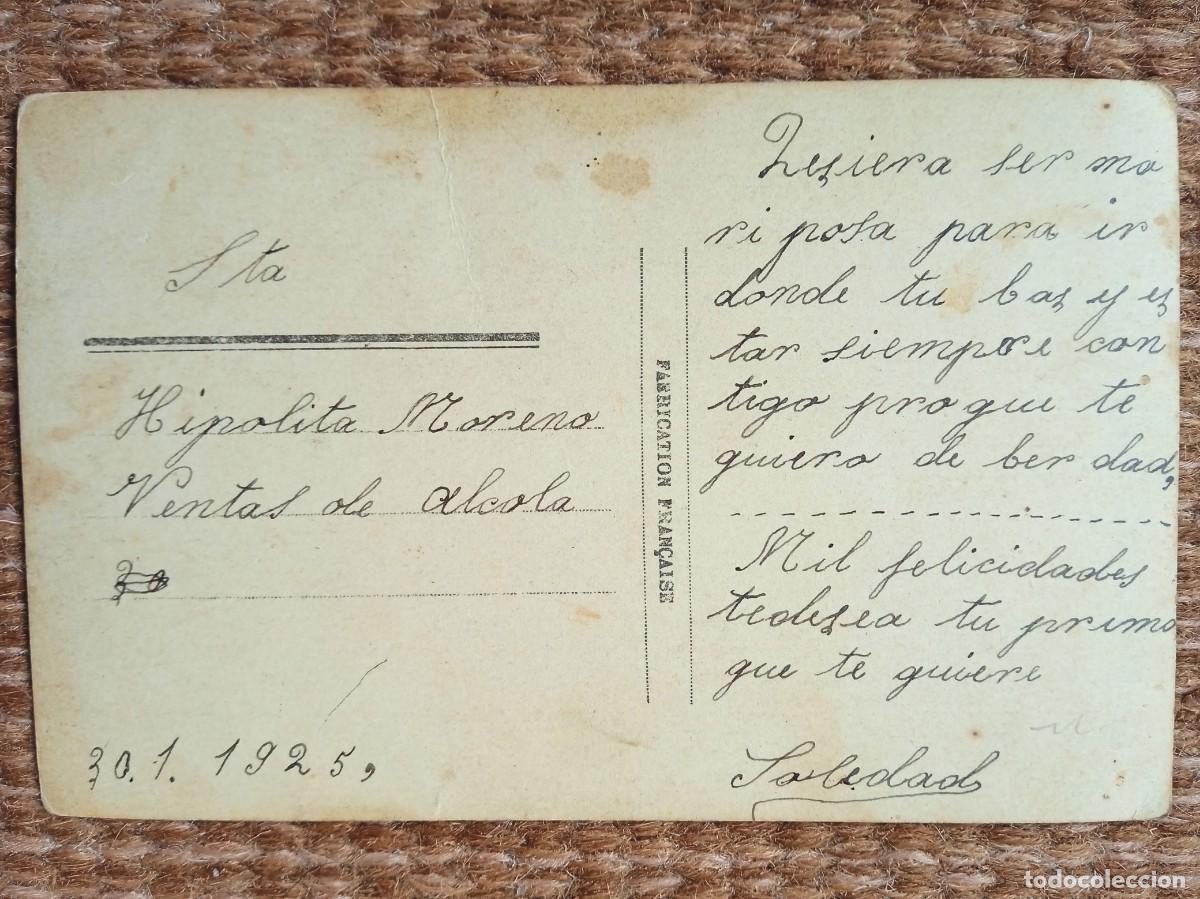 Sta
Hipolita Moreno
Ventas de alcola
30.1.1925,
FABRICATION FRANÇAISE
Quisiera ser ma
ri posa para ir
donde tu bas y es
tar siempre con
tigo proque te
quiero de ber dad,
Mil felicidades
tedesea tu primo
que te quiere
Soledad
todocoleccion